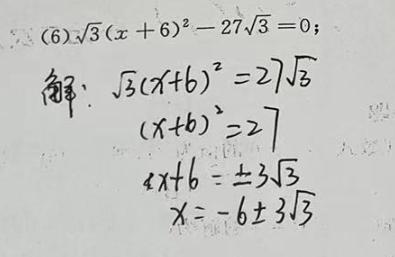 (6) √3(x+6)²−27√3=0;
解: √3(x+6)²=27√3
(x+6)²=27
x+6=±3√3
x=-6±3√3